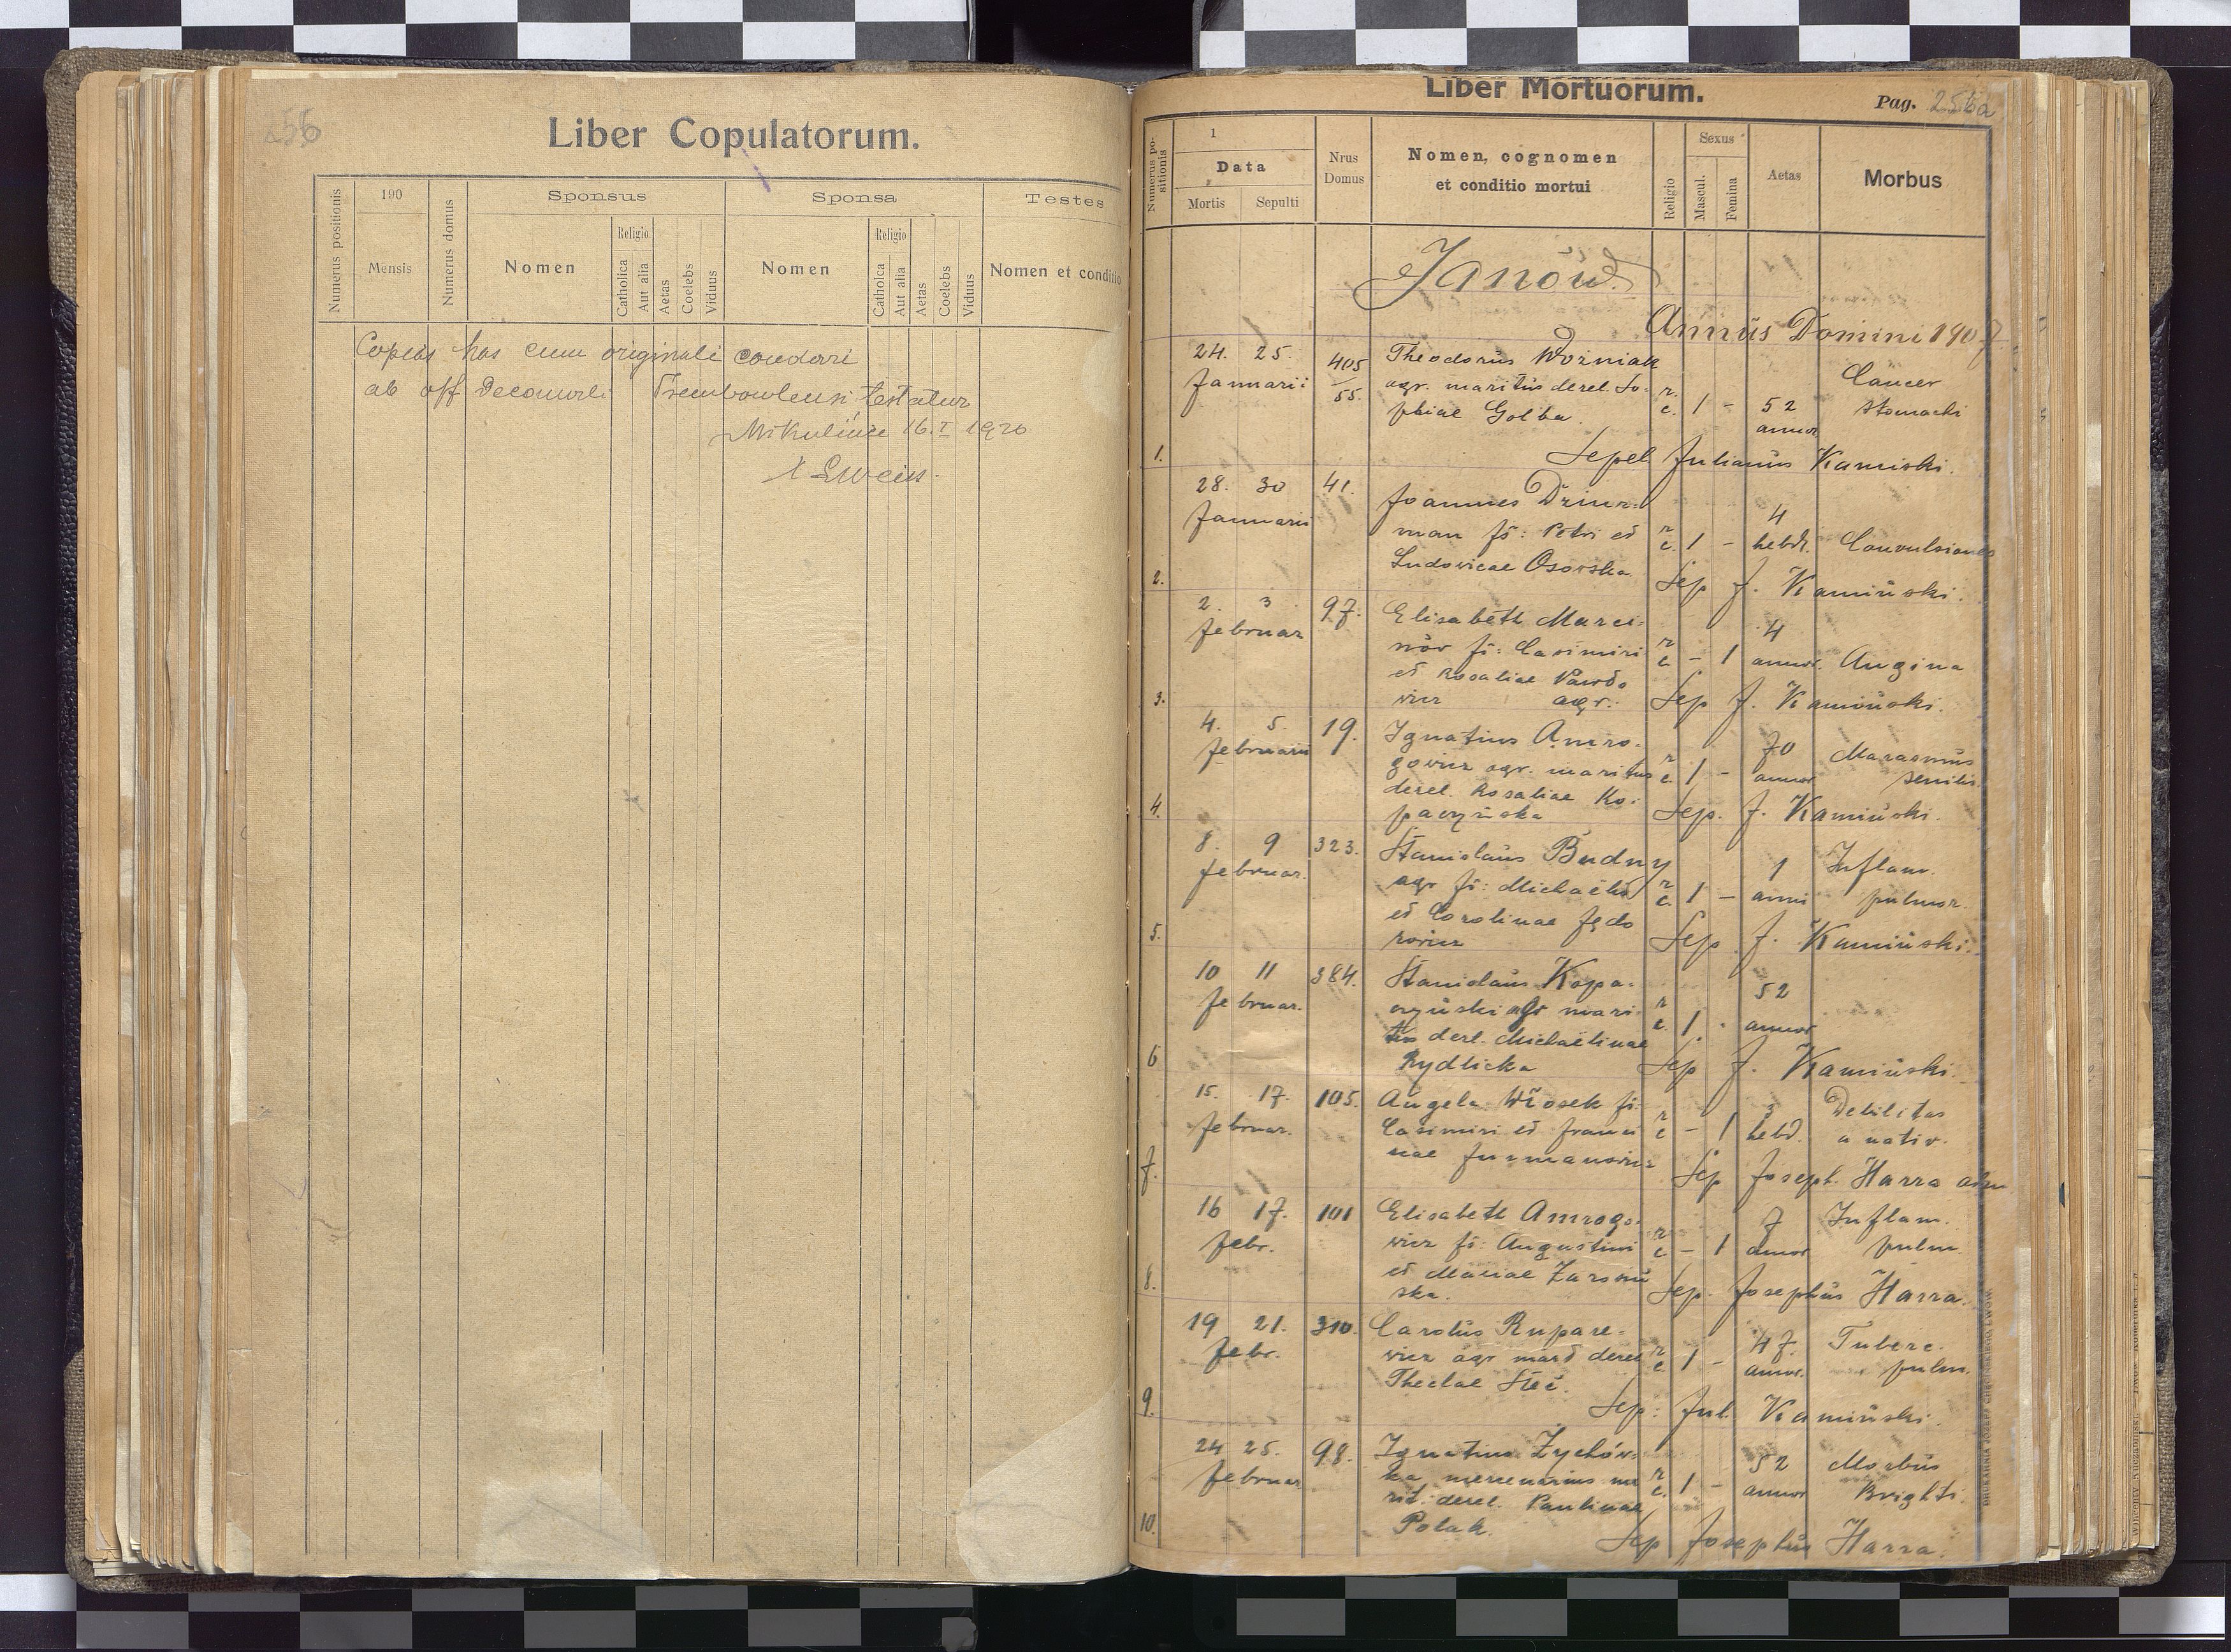 256
Liber Copulatorum.
Numerus positionis
190
Mensis
Numerus domus
Sponsus
Nomen
Religio
Catholica
Aut alia
Aetas
Coelebs
Viduus
Sponsa
Nomen
Religio
Catholca
Aut alia
Aetas
Coelebs
Viduus
Testes
Nomen et conditio
Copias has cum originali
ab off Decanali Trembowlensi testatur
Mikulińce 16.I 1920
Liber Mortuorum.
Pag. 256a
Numerus po-
sitionis
1
Data
Mortis
Sepulti
Nrus
Domus
Nomen, cognomen
et conditio mortui
Religio
Sexus
Mascul.
Femina
Aetas
Morbus
Janów.
Annus Domini 1907
24. 25. 405 Theodorus Woźniak
Januarii 55. agr. maritus derel. So- r. Cancer
phiae Goliba. c. 1 - 52 stomachi
annor
1. Sepel Julianus Kamiski.
28. 30 41. Joannes Dziur-
Januarii man fi: Petri et r. 4
Ludovicae Osowska c. 1 - hebd. Convulsiones
2. Sep J. Kamiński.
2. 3. 97. Elisabeth Marci-
Februar nów fi: Casimiri r 4
et Rosaliae c - 1 annor. Angina
wicz agr.
3. Sep J. Kamiński.
4. 5. 19. Ignatius Amro-
Februarii gowicz agr. maritus r 70 Marasmus
derel. Rosaliae Ko- c. 1 - annor senilis.
paczyńska
4. Sep. J. Kamiński.
8. 9 323. Stanislaus Budny
Februar. agr fi: Michaëlis r 1 Inflam.
et Carolinae Fedo c. 1 - anni pulmor.
rowicz
5. Sep J. Kamiński.
10 11 384. Stanislaus Kopa-
Februar. czyński agr mari r 52
tus derel. Michaëlinae c 1. - annor
Rydlicka
6 Sep J. Kamiński.
15. 17. 105. Angela Włosek fi:
Februar. Casimiri et Franci r 3 Debilitas
nae Furmanowicz c - 1 hebd. a nativ.
7. Sep Joseph. Harra adm
16 17. 101 Elisabeth Amrogo-
Febr. wicz fi: Augustini r 7 Inflam.
et Mariae c - 1 annor pulm.
ska.
8. Sep. Josephus Harra.
19 21. 310. Carolus Rupare-
Febr. wicz agr marit derel r 47. Tuberc.
Theclae Steć. c 1 - annor. pulm.
9. Sep: Jul. Kamiński.
24 25. 98. Ignatius Zychów-
Februar ka mercenarius ma r 52 Morbus
rit. derel. Paulinae c. 1 - annor Brighti.
Polak.
10. Sep Josephus Harra.